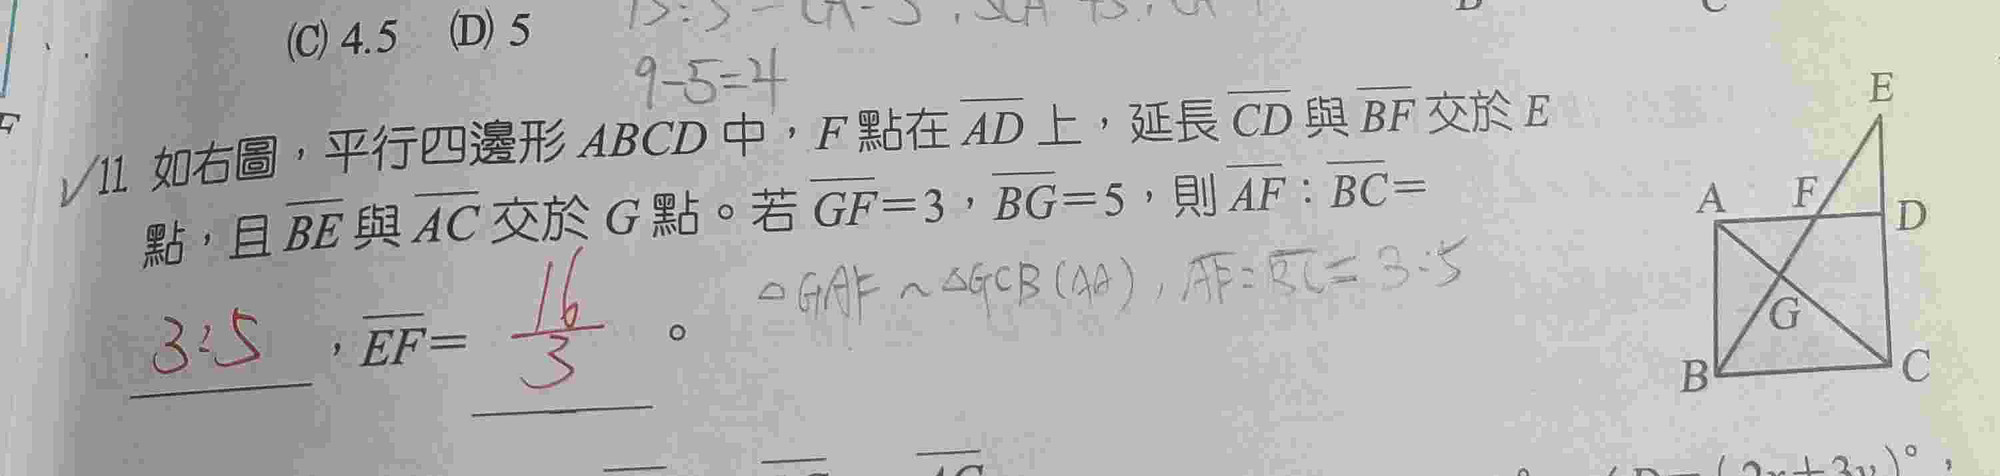 (C) 4.5 (D) 5
9-5=4
11 如右圖，平行四邊形 ABCD 中，F 點在 AD 上，延長 CD 與 BF 交於 E
點，且 BE 與 AC 交於 G 點。若 GF=3，BG=5，則 AF：BC=
3:5，EF= 16/3。
△GAF ~ △GCB (AA), AF:BC=3:5
E
A F D
G
B C